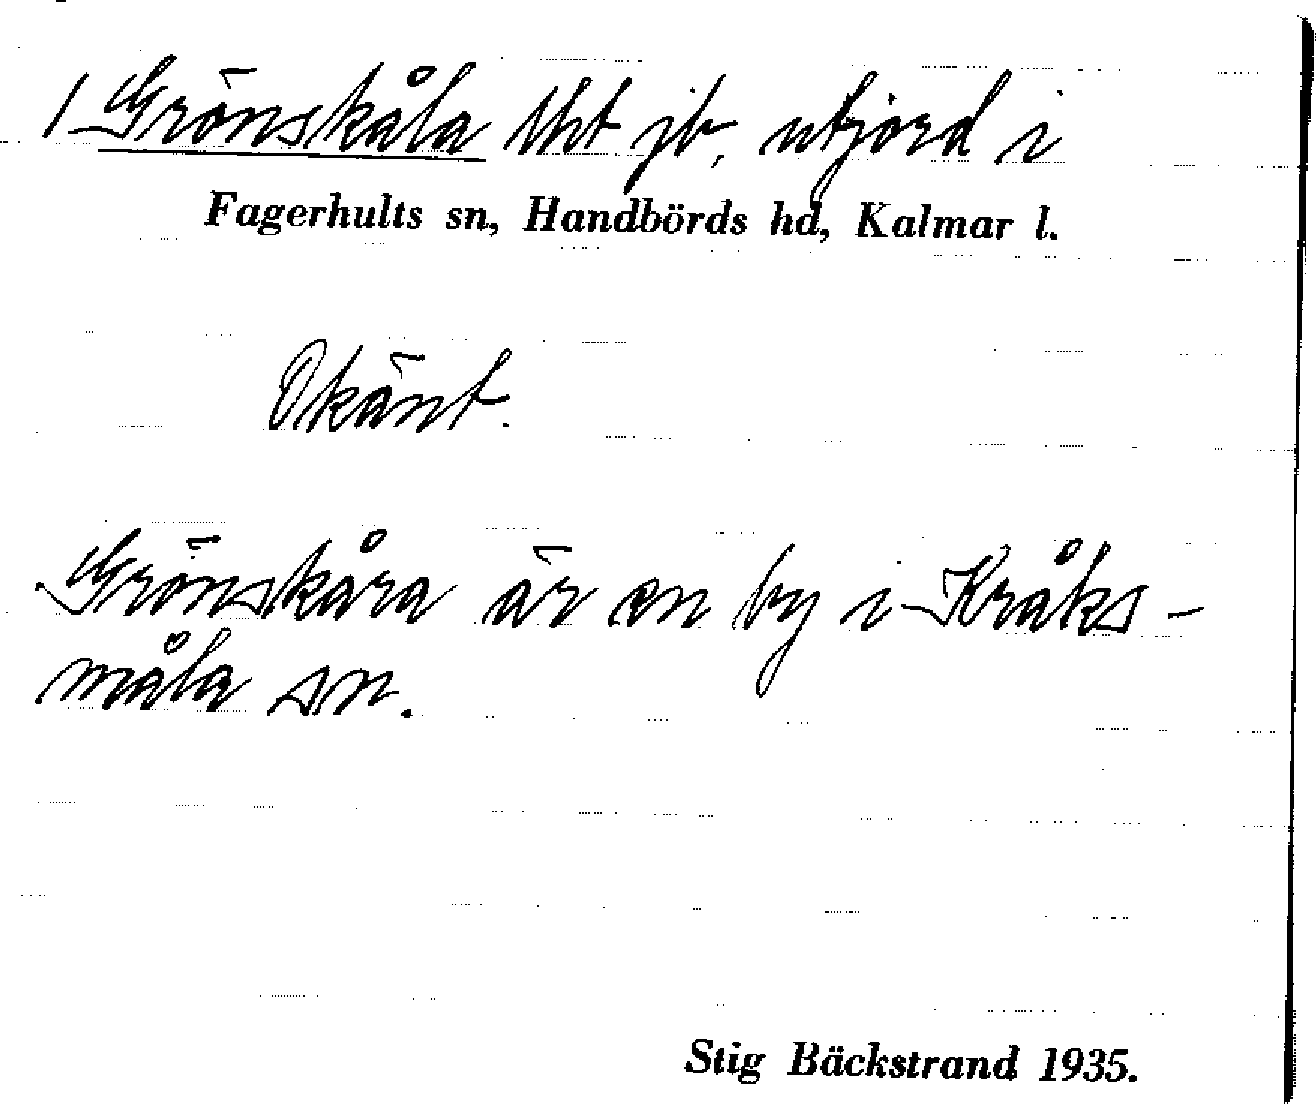 / Grönskåla tht jb, utjord i
Fagerhults sn, Handbörds hd, Kalmar l.
Okänt.
Grönskåra är en by i Kråks-
måla sn.
Stig Bäckstrand 1935.